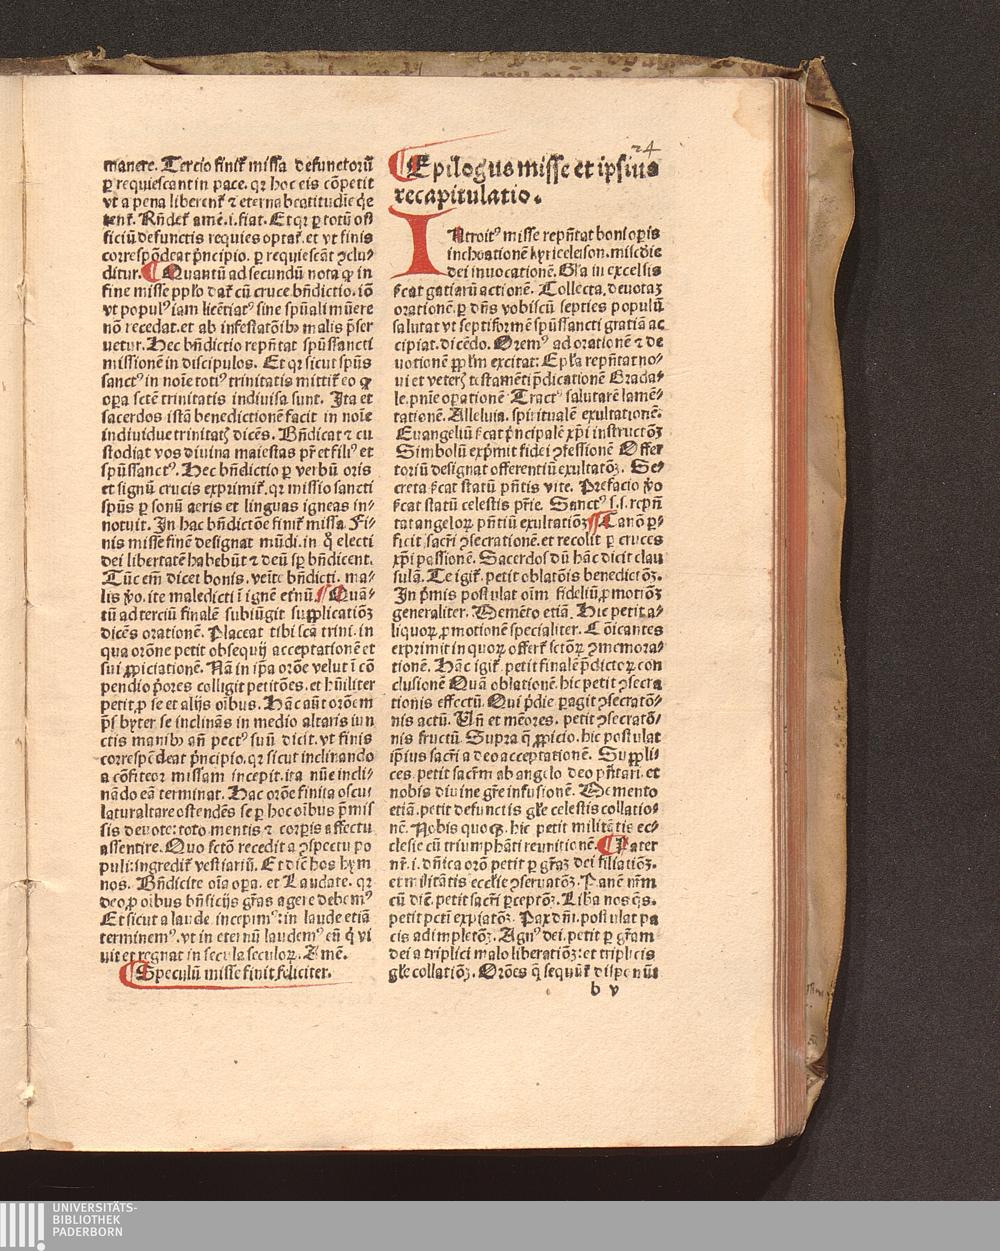 24
manere. Tercio finiť missa defunctorū
ꝑ requiescant in pace. qꝛ hoc eis cōpetit
vt a pena liberenť ⁊ eterna beatitudīe de
tenť. Rñdeť amē .i. fiat. Et qꝛ ꝑ totū off
ficiū defunctis requies optať. et vt finis
correspōdeat pͥncipio. ꝑ requiescāt ꝯclu⸗
ditur. Quantū ad secundū nota ꝙ in
fine misse pplo dať cū cruce bñdictio. iō
vt popul⁹ iam licētiat⁹ sine spūali mūere
nō recedat. et ab infestatōibꝫ malis p̄ser
uetur. Hec bñdictio repn̄tat spūssancti
missionē in discipulos. Et qꝛ sicut spūs
sanct⁹ in noīe toti⁹ trinitatis mittiť eo ꝙ
oꝑa scte trinitatis indiuisa sunt. Ita et
sacerdos istā benedictionē facit in noīe
indiuidue trinitatꝭ dicēs. Bñdicat ⁊ cu
stodiat vos diuina maiestas pr̄ et fili⁹ et
spūssanct⁹. Hec bñdictio ꝑ verbū oris
et signū crucis exprimiť. qꝛ missio sancti
spūs ꝑ sonū aeris et linguas igneas in⸗
notuit. In hac bñdictōe finiť missa. Fi⸗
nis misse finē designat mūdi. in q̊ electi
dei libertatē habebūt ⁊ deū sꝑ bñdicent.
Tūc em̄ dicet bonis. veīte bñdicti. ma⸗
lis ꝟo. ite maledicti ī ignē etnū. Quā⸗
tū ad terciū finalē subiūgit supplicatiōꝫ
dicēs orationē. Placeat tibi sca trini. in
qua orōne petit obsequij acceptationē et
sui ꝓpiciationē. Nā in ip̄a orōe velut ī cō
pendio pͥores colligit petitōes. et hūiliter
petit. ꝑ se et alijs oībus. Hāc aūt orōem
pͥsbyter se inclinās in medio altaris iun
ctis manibꝫ añ pect⁹ suū dicit. vt finis
correspōdeat pͥncipio. qꝛ sicut inclinando
a cōfiteor missam incepit. ita nūc incli⸗
nādo eā terminat. Hac orōe finita oscu
latur altare ostendēs se ꝑ hoc oībus p̄mis
sis deuote: toto mentis ⁊ corꝑis affectu
assentire. Quo fctō recedit a ꝯspectu po
puli: ingrediť vestiariū. Et dic̄ hos hym
nos. Bñdicite oīa oꝑa. et Laudate. qꝛ
deo ꝓ oībus bn̄ficijs gr̄as agere debem⁹
Et sicut a laude incepim⁹: in laude etiā
terminem⁹. vt in eternū laudem⁹ eū qͥ vi
uit et regnat in secula seculoꝝ. Amē.
Speculū misse finit feliciter.
Epilogus misse et ipsius
recapitulatio.
INtroit⁹ misse repn̄tat boni oꝑis
inchoationē kyrieeleison. mīscdie
dei inuocationē. Gl̓a in excelsis
ſc̄at gratiarū actionē. Collecta. deuotaꝫ
orationē. ꝑ dn̄s vobiscū septies populū
salutat vt septiformē spūssancti gratiā ac
cipiat. dicēdo. Orem⁹ ad orationē ⁊ de
uotionē ppl̓m excitat: Epl̓a repn̄tat no⸗
ui et veterꝭ testamēti p̄dicationē Grada⸗
le. pnīe oꝑationē Tract⁹ salutarē lamē⸗
tationē. Alleluia. spiritualē exultationē.
Euangeliū ſc̄at pͥncipalē xp̄i instructōꝫ
Simbolū exp̄mit fidei ꝯfessionē Offer
toriū designat offerentiū exultatōꝫ. Se⸗
creta ſc̄at statū pn̄tis vite. Prefacio ꝟo
ſc̄at statū celestis pr̄ie. Sanct⁹ s.s. repn̄
tat angeloꝝ pn̄tiū exultatiōꝫ Canō ꝑ⸗
ficit sacri ꝯsecrationē. et recolit ꝑ cruces
xp̄i passionē. Sacerdos dū hāc dicit clau
sulā. Te igiť. petit oblatōis benedictōꝫ.
In pͥmis postulat oīm fideliū ꝓmotiōꝫ
generaliter. Memēto etiā. Hic petit a⸗
liquoꝝ ꝓmotionē specialiter. Cōicantes
exprimit in quoꝝ offerť sctōꝝ ꝯmemora⸗
tionē. Hāc igiť. petit finalē p̄dictoꝝ con
clusionē Quā oblationē. hic petit ꝯsecra
tionis effectū. Qui pͥdie pagit ꝯsecratō⸗
nis actū. Vn̄ et memores. petit ꝯsecratō⸗
nis fructū. Supra q̄ ꝓpicio. hic postulat
ip̄ius sacri a deo acceptationē. Suppli⸗
ces. petit sacrm̄ ab angelo deo pn̄tari. et
nobis diuine gr̄e infusionē. Memento
etiā. petit defunctis gl̓e celestis collatio⸗
nē. Nobis quoqꝫ. hic petit militātis ec⸗
clesie cū triumphāti reunitionē. Pater
nr̄. i. dn̄ica orō petit ꝑ gr̄aꝫ dei filiatiōꝫ.
et militātis eccl̓ie ꝯseruatōꝫ. Panē nr̄m
cū dic̄. petit sacri ꝑceptōꝫ. Libͣa nos q̄s.
petit pctī expiatōꝫ. Pax dn̄i. postulat pa
cis adimpletōꝫ. Agn⁹ dei. petit ꝑ gr̄am
dei a triplici malo liberatiōꝫ: et triplicis
gl̓e collatiōꝫ. Orōes q̄ sequūť dispenūi
b v
UNIVERSITÄTS-
BIBLIOTHEK
PADERBORN